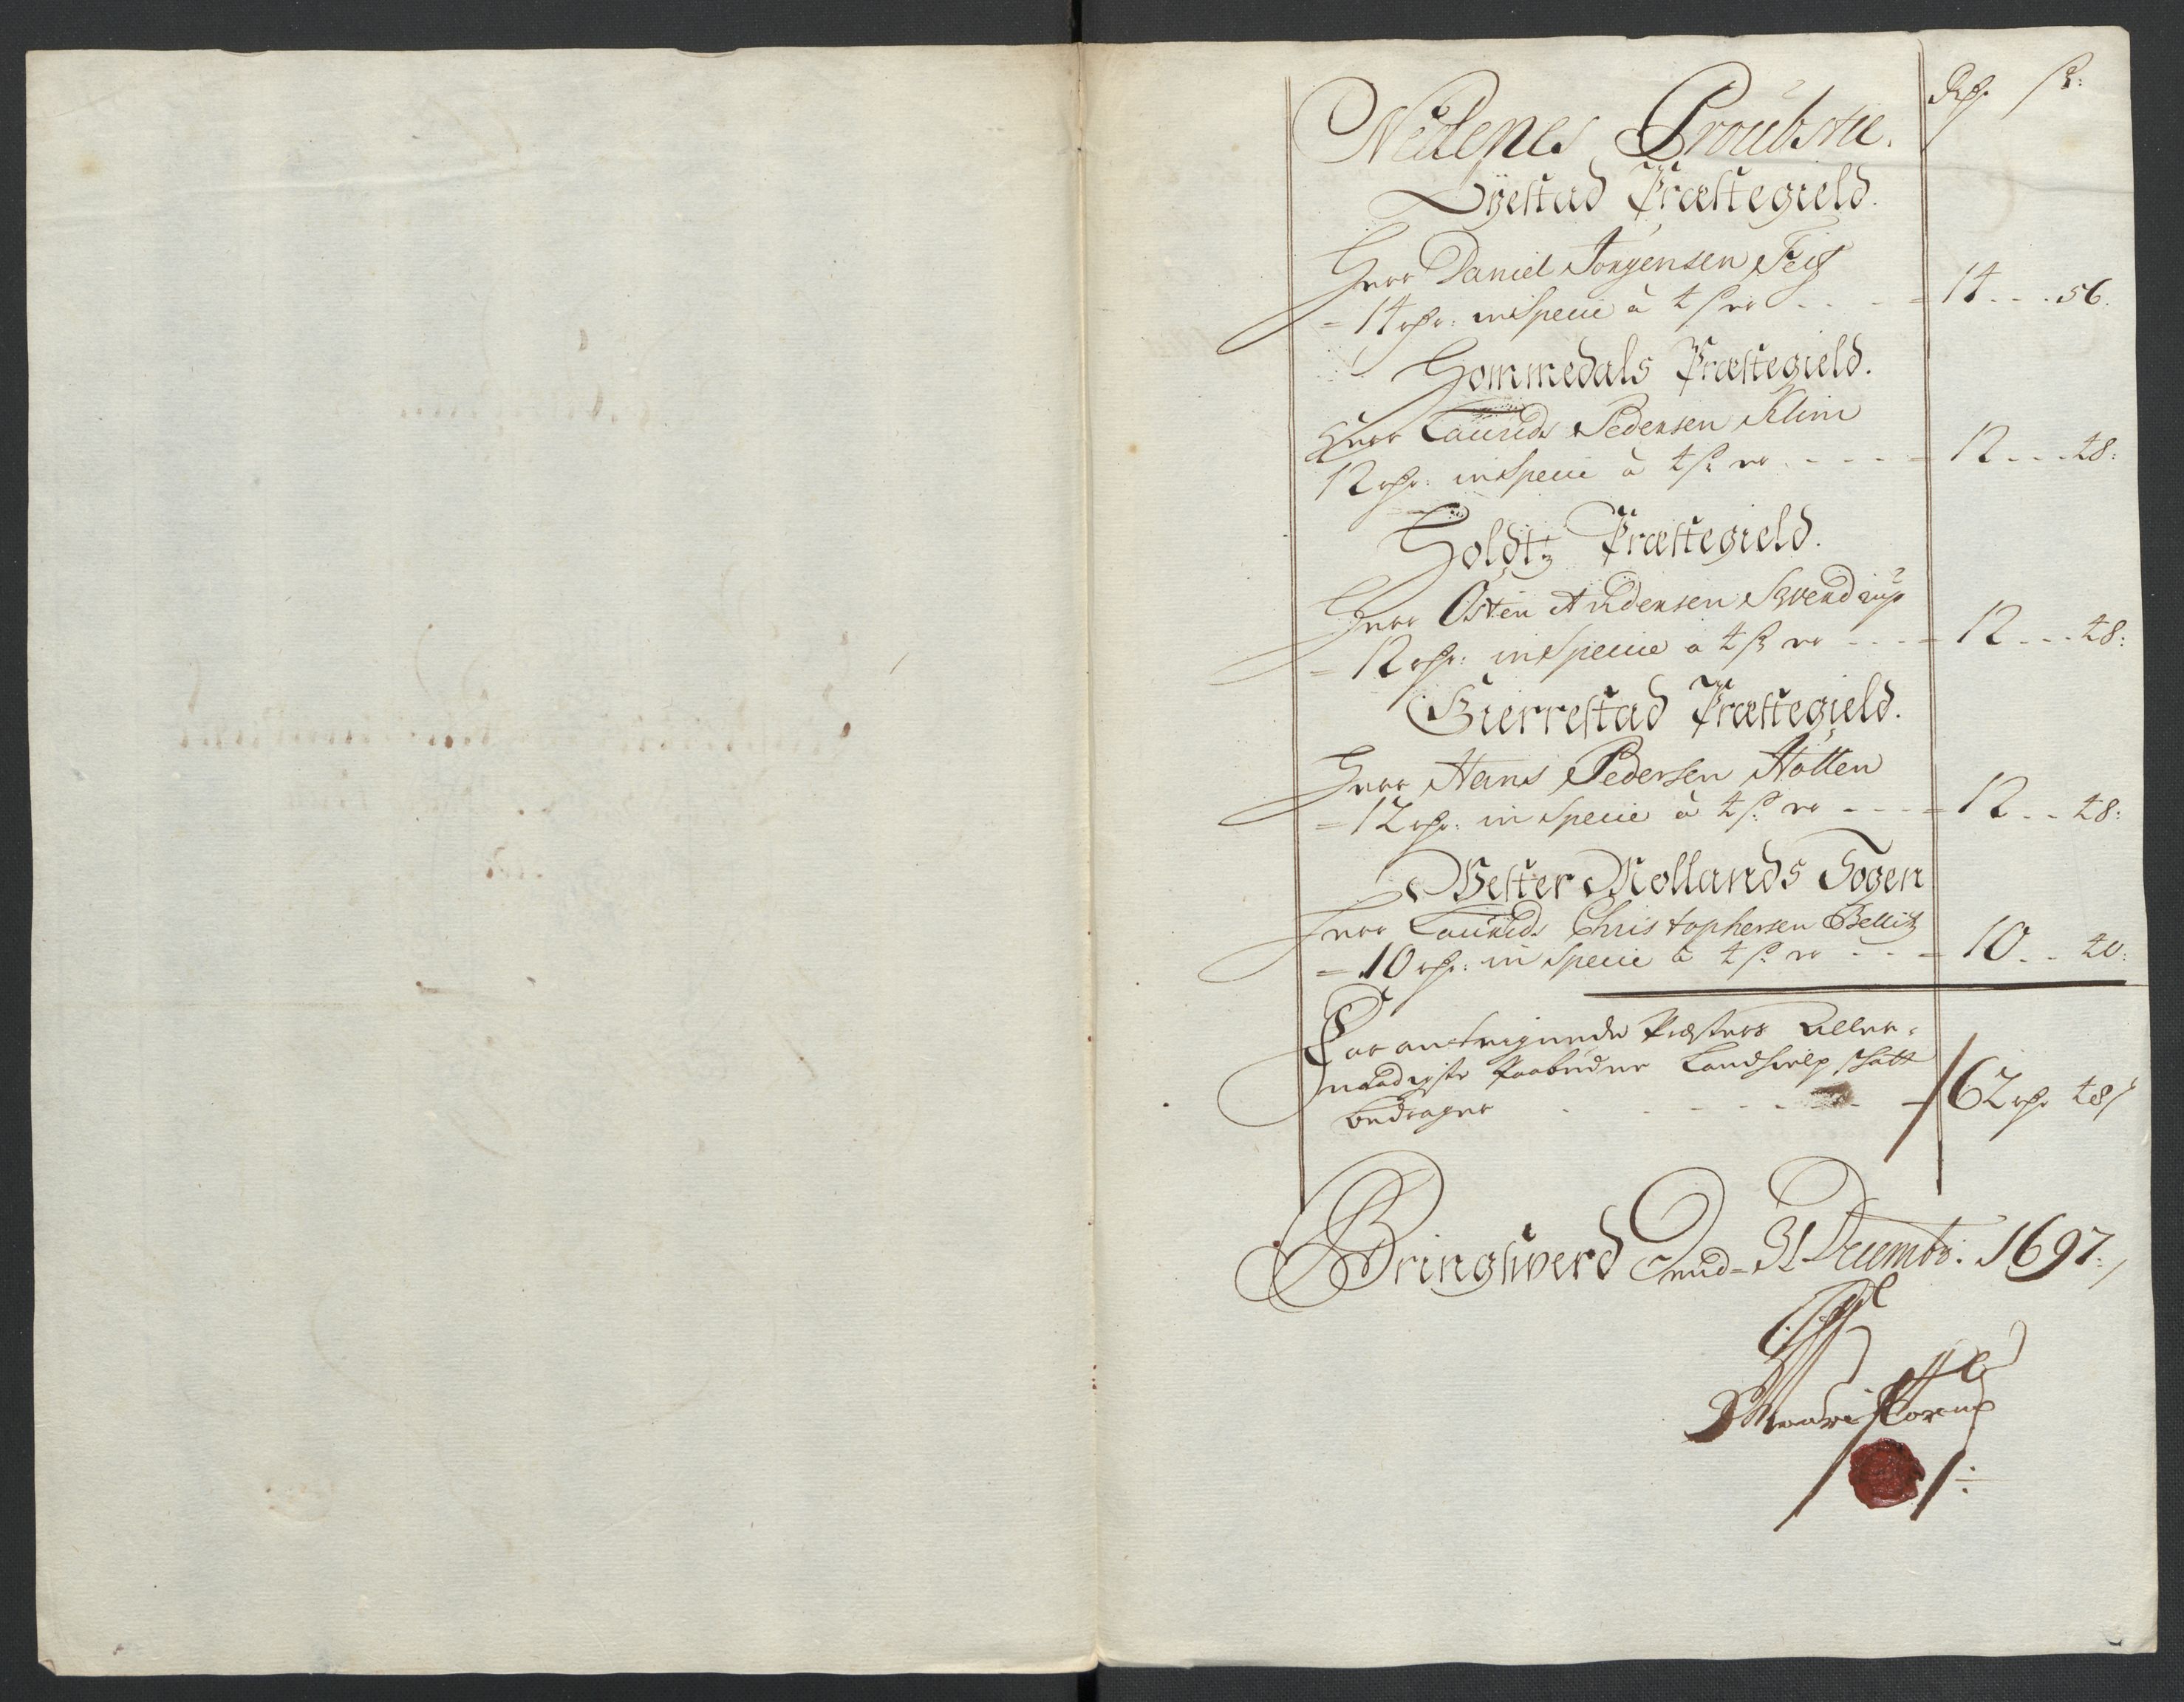 Rdr. ß:
Nedenes Proubstie.
Öyestad Præstegield.
Herr Daniel Jörgensen Teist
= 14 rdr: in Specie à 4 ß er - - - = 14 - - . 56.
Hommedals Præstegield.
Herr Laurids Pedersen Klim
12 rdr: in Specie à 4 ß er - - - - = 12 - - . 48:
Holdtz Præstegield.
Herr Osten Andersen Svendrup
= 12 rdr: in Specie a 4 ß er - - - = 12 - - . 48:
Gierrestad Præstegield.
Herr Hans Pedersen Hotten
= 12 rdr: in Specie à 4 ß er - - - = 12 - - 48:
Wester Mollands Sogen
Herr Laurids Christophersen Bellitz
= 10 rdr: in Specie à 4 ß er - - - = 10 - - 40:
For anteignede Præsters Aller-
naadigste Paabudne Landhielp Skatt
bedrager - - - - - - 62 rdr 48/
Bringsverd Den 31 Decembr: 1697:/